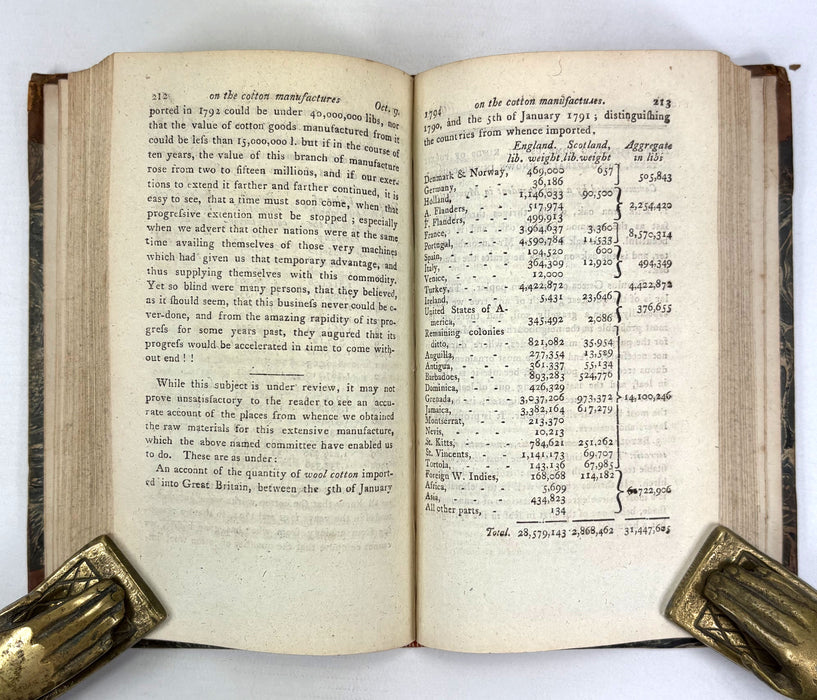 212 on the cotton manufactures Oct. 9.
ported in 1792 could be under 40,000,000 libs, nor
that the value of cotton goods manufactured from it
could be leſs than 15,000,000 l. but if in the course of
ten years, the value of this branch of manufacture
rose from two to fifteen millions, and if our exer-
tions to extend it farther and farther continued, it is
easy to see, that a time must soon come, when that
progreſsive extention must be stopped; especially
when we advert that other nations were at the same
time availing themselves of those very machines
which had given us that temporary advantage, and
thus supplying themselves with this commodity.
Yet so blind were many persons, that they believed,
as it ſhould seem, that this busineſs never could be o-
ver-done, and from the amazing rapidity of its pro-
greſs for some years past, they augured that its
progreſs would be accelerated in time to come with-
out end ! !
While this subject is under review, it may not
prove unsatisfactory to the reader to see an accu-
rate account of the places from whence we obtained
the raw materials for this extensive manufacture,
which the above named committee have enabled us
to do. These are as under:
An account of the quantity of wool cotton import-
ed into Great Britain, between the 5th of January
1794 on the cotton manufactures. 213
1790, and the 5th of January 1791; distinguiſhing
the countries from whence imported,
England. Scotland, Aggregate
lib. weight lib. weight in libs
Denmark & Norway, 469,000 657
Germany, 36,186 505,843
Holland, 1,146,033 90,500
A. Flanders, 517,974 2,254,420
F. Flanders, 499,913
France, 3,964,637 3,360
Portugal, 4,590,784 11,533 8,570,314
Spain, 104,520 600
Italy, 364,309 12,920 494,349
Venice, 12,000
Turkey, 4,422,872 4,422,872
Ireland, 5,431 23,646
United States of A- 376,655
merica, 345,492 2,086
Remaining colonies
ditto, 821,082 35,954
Anguilla, 277,354 13,589
Antigua, 361,337 55,134
Barbadoes, 893,283 524,776
Dominica, 426,329
Grenada, 3,037,206 973,372 14,100,246
Jamaica, 3,382,164 617,279
Montserrat, 213,370
Nevis, 10,213
St. Kitts, 784,621 251,262
St. Vincents, 1,141,173 69,707
Tortola, 143,136 67,985
Foreign W. Indies, 168,068 114,182
Africa, 5,699 722,906
Asia, 434,823
All other parts, 134
Total. 28,579,143 2,868,462 31,447,605